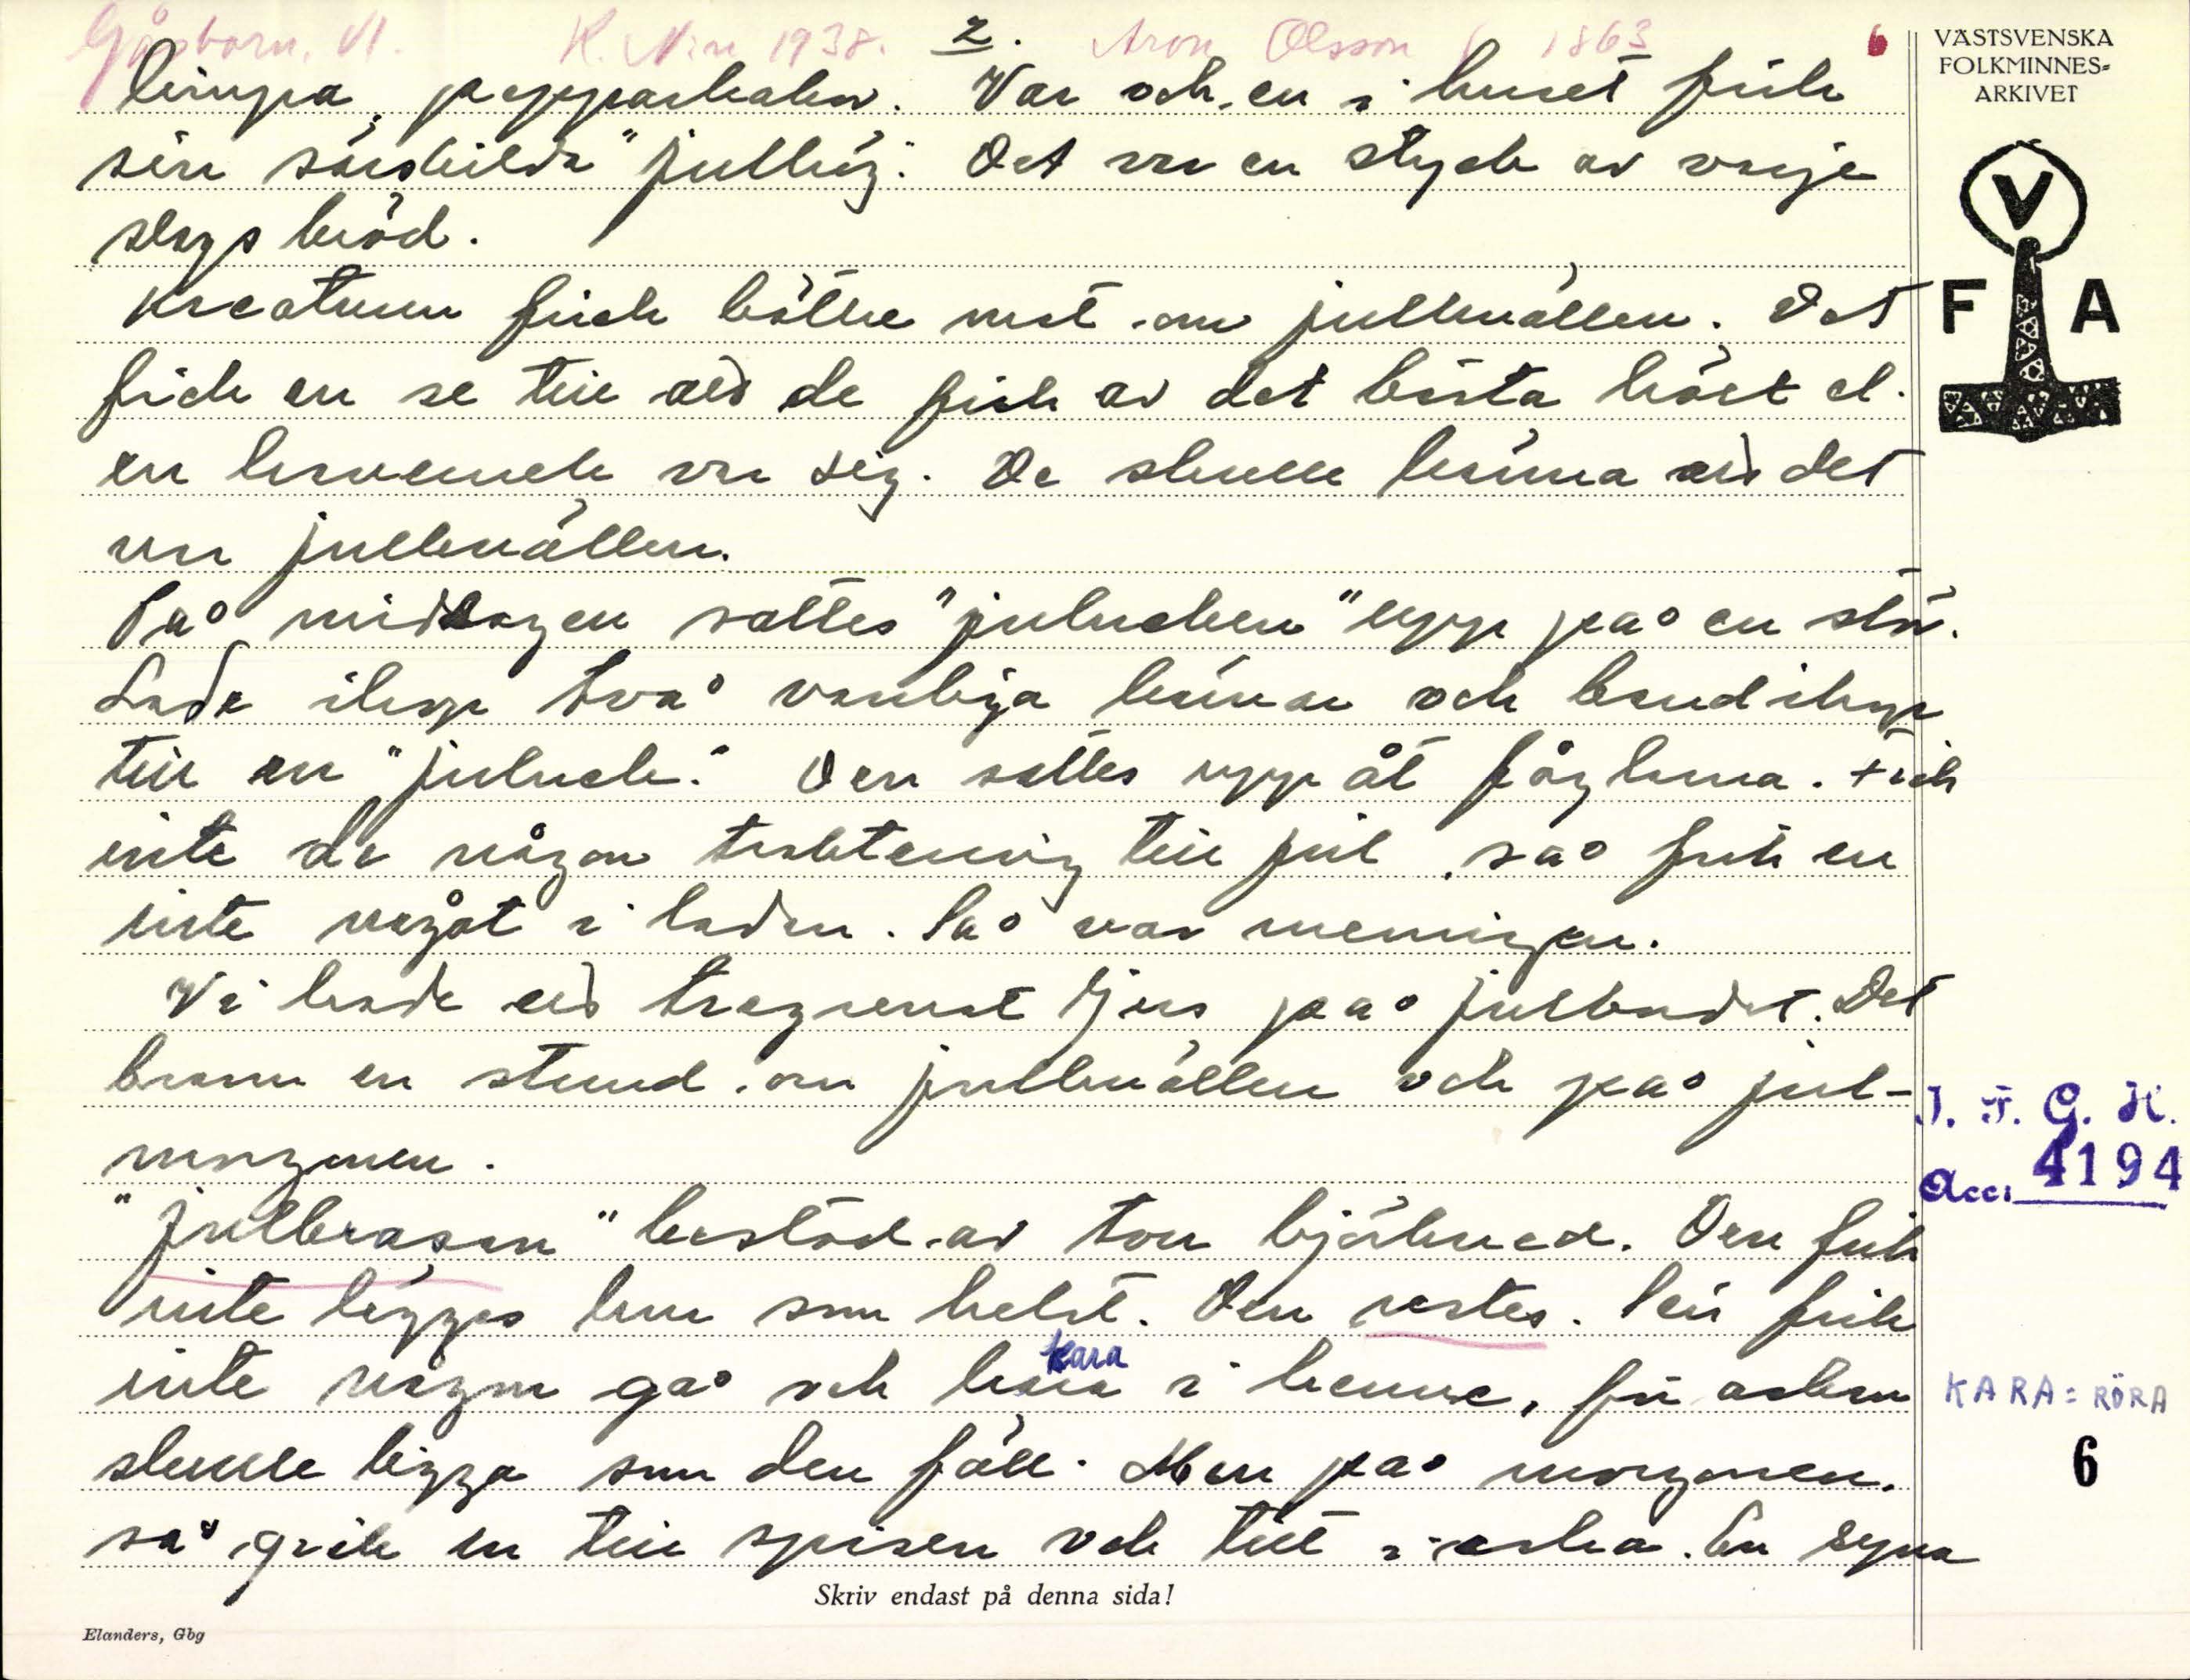 Gåsborn. Vl. K. Nin 1938. 2. Aron Olsson f. 1863 6
limpa, pepparkakor. Var och en i huset fick
sin särskilda "jullög". Det var en styck av varje
slags bröd.
Kreaturen fick bättre mat om julkvällen. Det
fick en se till att de fick av det bästa höet el.
en havrenek var sig. De skulle känna att det
var julkvällen.
På middagen sattes "juluchen" upp på en stör.
Lade ihop två vanliga kärvar och band ihop
till en "julnek". Den sattes upp åt fåglarna. Fick
inte de någon traktering till jul, så fick en
inte något i ladan. Så var meningen.
Vi hade ett tregrenat ljus på julbordet. Det
brann en stund om julkvällen och på jul-
morgonen.
"Julbrasan" bestod av torr björkved. Den fick
inte läggas hur som helst. Den restes. Sen fick
inte någon gå och kara i henne, för askan
kara
skulle ligga som den föll. Men på morgonen,
så gick en till spisen och titt i aska. En syna
Skriv endast på denna sida!
Elanders, Gbg
VÄSTSVENSKA
FOLKMINNES-
ARKIVET
V
F A
I. F. G. H.
Acc. 4194
KARA = RÖRA
6